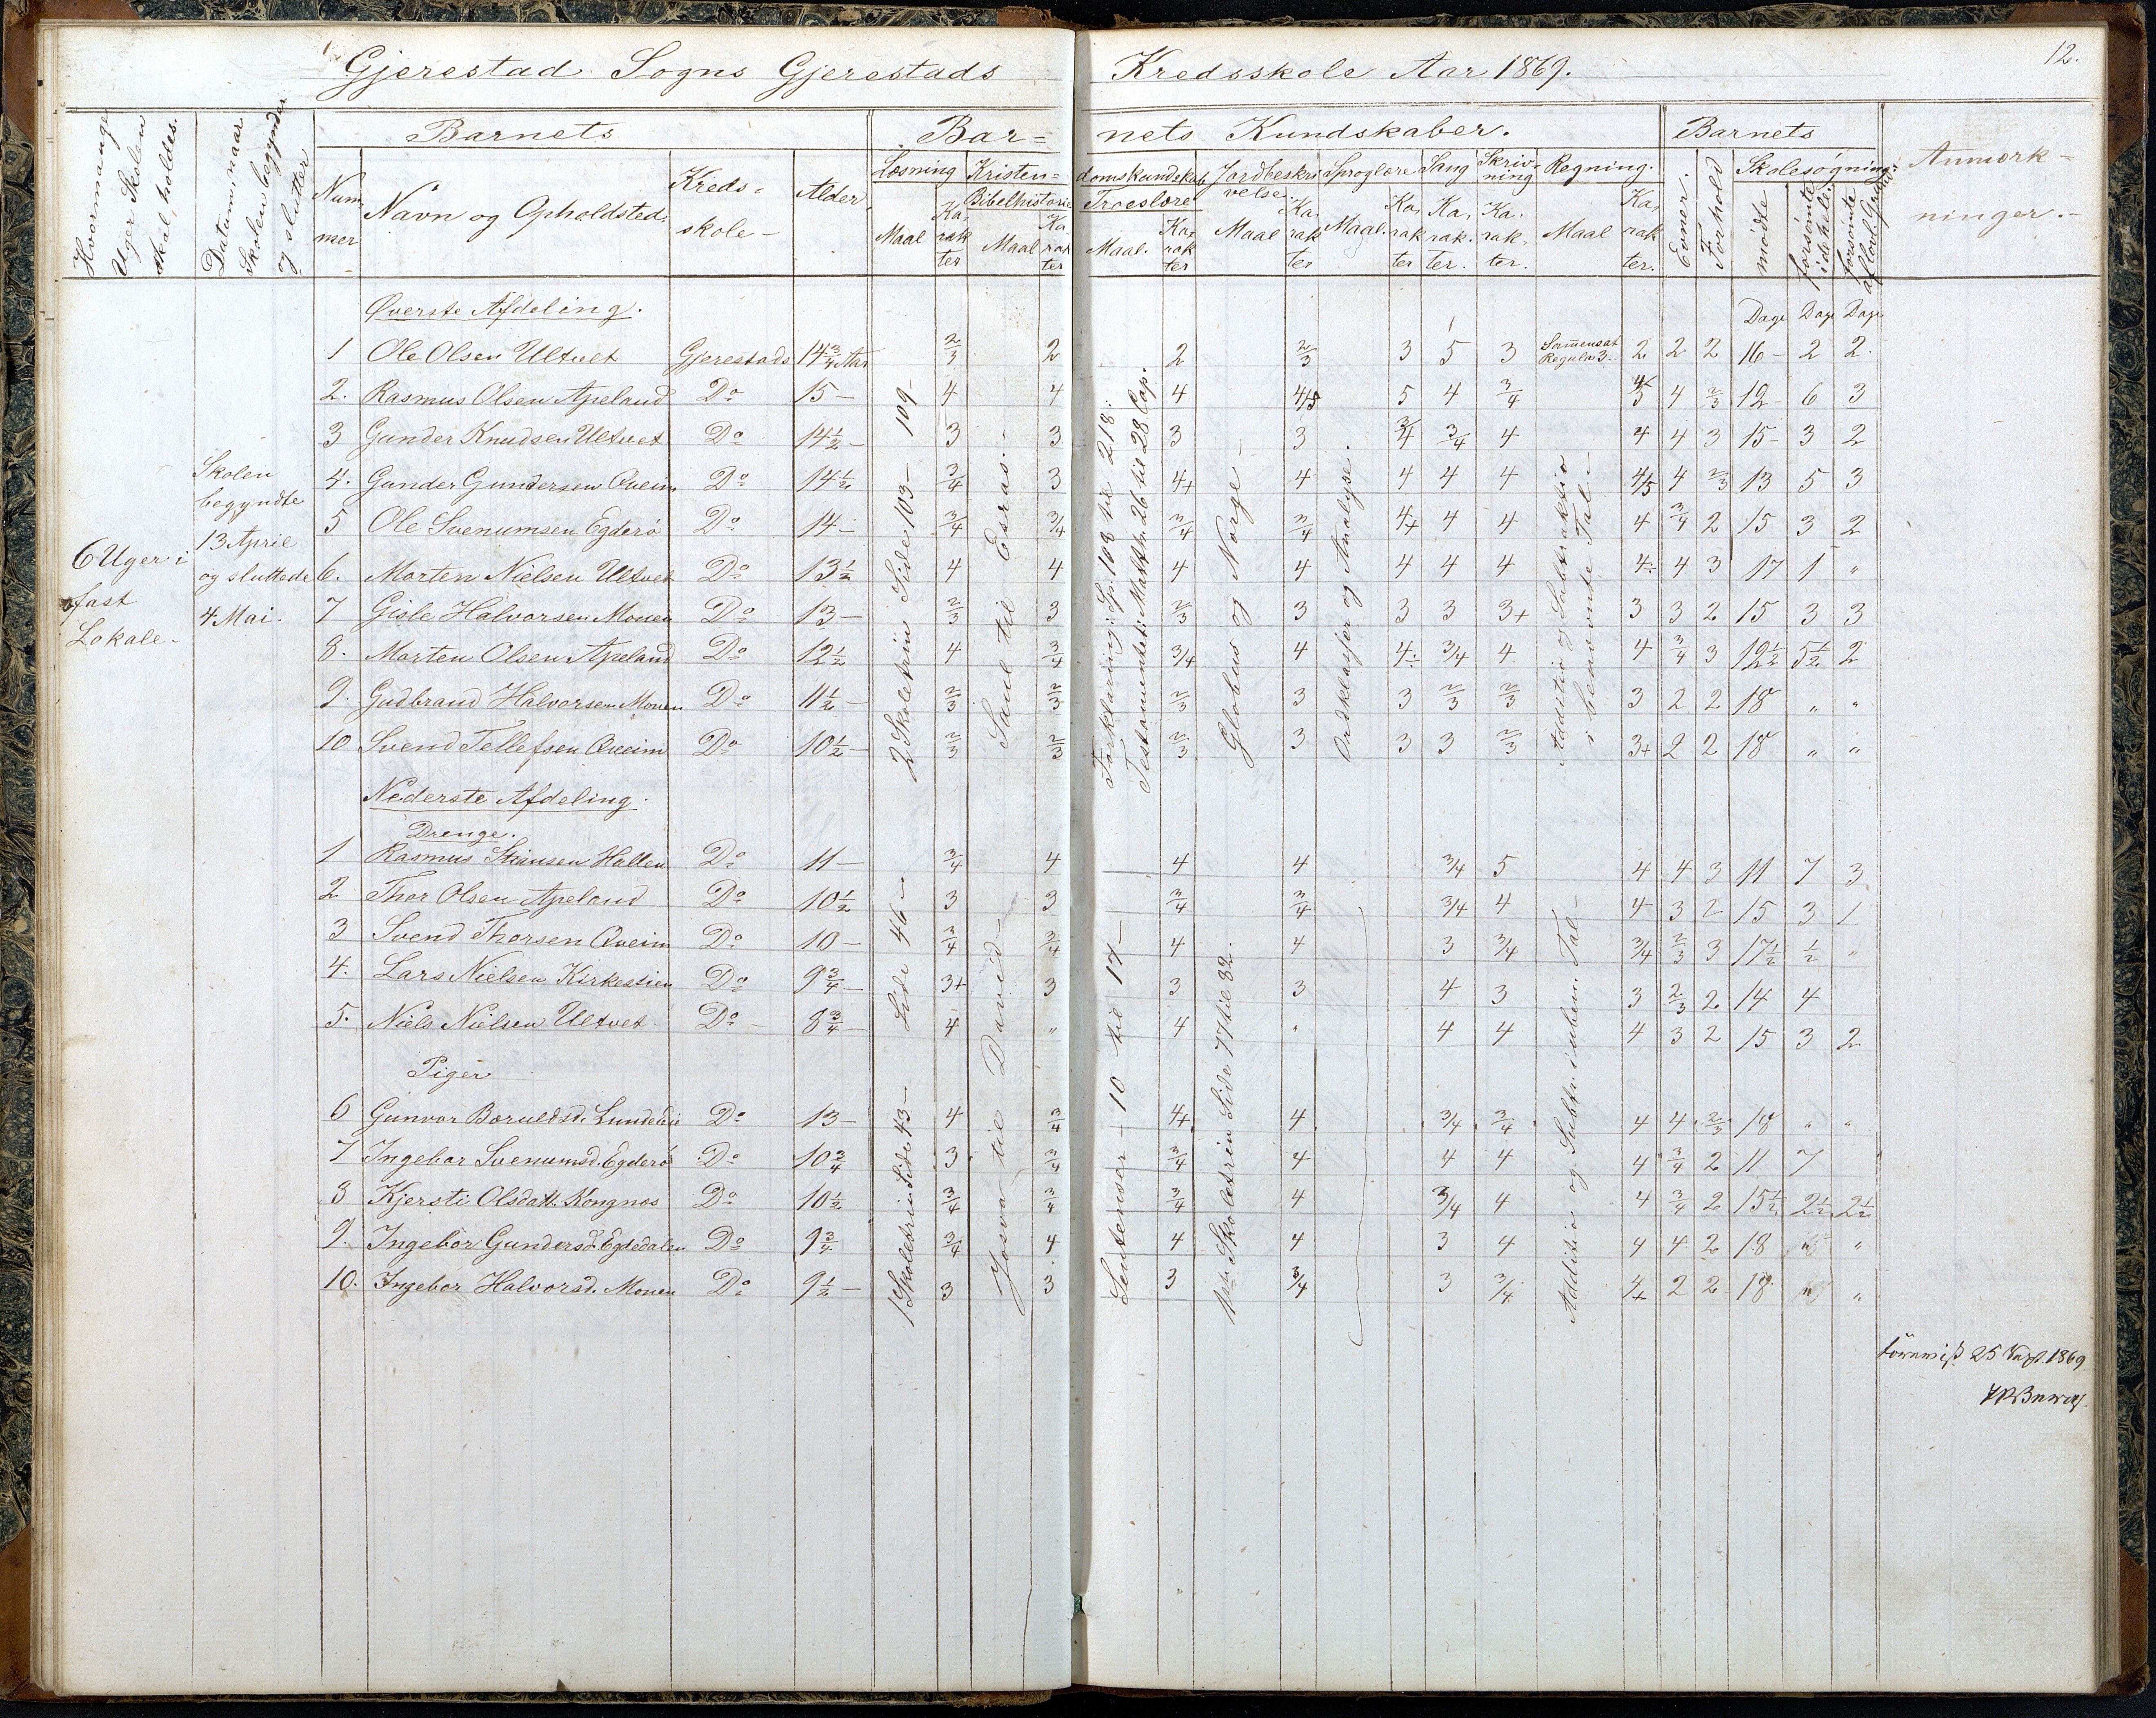 12.
Gjerestad Sogns Gjerestads Kredsskole Aar 1869.
Hvormange Uger Skolen skal holdes.
Datum, naar Skolen begynder og slutter
Barnets
Nummer
Navn og Opholdsted.
Kredsskole
Alder
Barnets Kundskaber.
Læsning Maal Karakter
Kristendomskundskab
Bibelhistorie Maal Karakter
Troeslære Maal. Karakter
Jordbeskrivelse Maal Karakter
Sproglære Maal. Karakter
Sang Karakter.
Skrivning Karakter.
Regning. Maal Karakter.
Barnets
Evner. Forhold
Skolesøgning
mødte forsømte idehele forsømte
Anmærkninger.
6 Uger i fast Lokale
Skolen begyndte 13 April og sluttede 4 Mai.
Øverste Afdeling.
Dage Dage Dage
1 Ole Olsen Ultvet Gjerestads 14 3/4 Aar 2/3 2 2 2/3 3 5 3 Samensat Regula 3 2 2 2 16 2 2
2. Rasmus Olsen Apeland Do 15 4 4 4 4/5 5 4 3/4 4/5 4 2/3 12 6 3
3 Gunder Knudsen Ultvet Do 14 1/2 3 3 3 3 3/4 3/4 4 4 4 3 15 3 2
4. Gunder Gundersen Qveim Do 14 1/2 3/4 3 4+ 4 4 4 4 4/5 4 2/3 13 5 3
5 Ole Svenumsen Egderø Do 14 3/4 3/4 3/4 3/4 4+ 4 4 4 3/4 2 15 3 2
6. Morten Nielsen Ultvet Do 13 1/2 4 4 4 4 4 4 4 4÷ 4 3 17 1 "
7 Gisle Halvorsen Monen Do 13 2/3 3 2/3 3 3 3 3+ 3 3 2 15 3 3
8. Morten Olsen Apeland Do 12 1/2 4 3/4 3/4 4 4÷ 3/4 4 4 3/4 3 12 1/2 5 1/2 2
9. Gudbrand Halvorsen Monen Do 11 1/2 2/3 2/3 2/3 3 3 2/3 2/3 3 2 2 18 " "
10 Svend Tellefsen Qveim Do 10 1/2 2/3 2/3 2/3 3 3 3 2/3 3+ 2 2 18 " "
2 Skoletrin Side 103 109
Saul til Esras.
Forklaring: Sp. 108 til 218:
Testamentet: Matth. 26 til 28 Cap.
Globus og Norge
Ordklasser og Analyse.
Additio og Subtraktio i benævnte Tal.
Nederste Afdeling.
Drenge.
1 Rasmus Hallen Do 11 3/4 4 4 4 3/4 5 4 4 3 11 7 3
2 Thor Olsen Apeland Do 10 1/2 3 3 3/4 3/4 3/4 4 4 3 2 15 3 1
3 Svend Thorsen Qveim Do 10 3/4 3/4 4 4 3 3/4 3/4 2/3 3 17 1/2 1/2 "
4. Lars Nielsen Kirkestien Do 9 3/4 3+ 3 3 3 4 3 3 2/3 2 14 4
5. Niels Nielsen Ultvet Do 8 3/4 4 " 4 " 4 4 4 3 2 15 3 2
Piger
6 Gunvor Boruldsd. Do 13 4 3/4 4+ 4 3/4 3/4 4 4 2/3 18 " "
7 Ingebor Svenumsd. Egderø Do 10 3/4 3 3/4 3/4 4 4 4 4 3/4 2 11 7
8 Kjersti Olsdatt. Kongnæs Do 10 1/2 3/4 3/4 3/4 4 3/4 4 4 3/4 2 15 1/2 2 1/2 2 1/2
9. Ingebor Gundersd. Egdedalen Do 9 3/4 3/4 4 4 4 3 4 4 4 2 18 " "
10. Ingebor Halvorsd. Monen Do 9 1/2 3 3 3 3/4 3 3/4 4+ 2 2 18 " "
1 Skoletrin Side 43 Side 46
Josva til David
Sentenser 10 til 17
1ste Skoletrin Side 77 til 82.
Additio og Subtr. i ubenæ. Tal
25 Sept. 1869